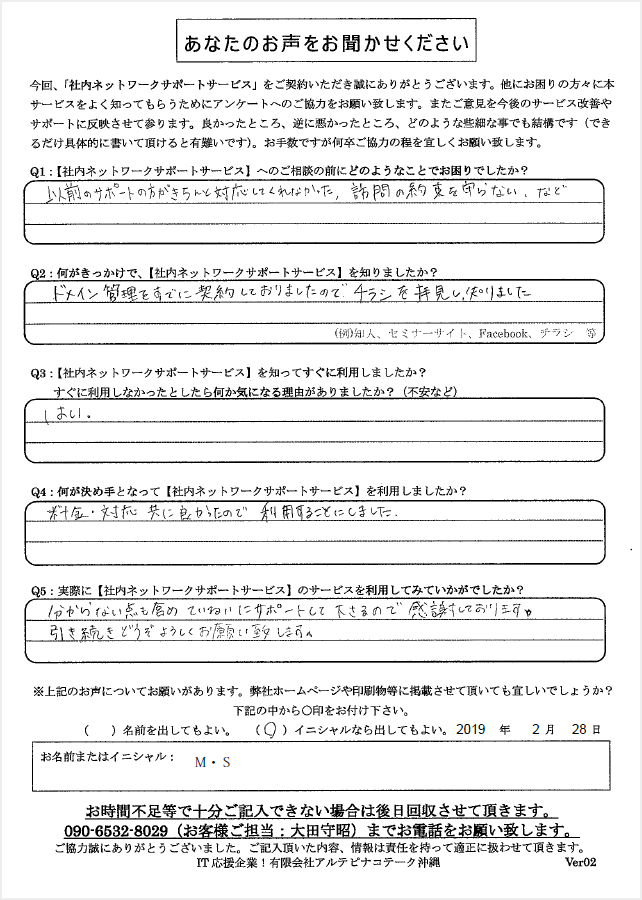 あなたのお声をお聞かせください
今回、「社内ネットワークサポートサービス」をご契約いただき誠にありがとうございます。他にお困りの方々に本
サービスをよく知ってもらうためにアンケートへのご協力をお願い致します。またご意見を今後のサービス改善や
サポートに反映させて参ります。良かったところ、逆に悪かったところ、どのような些細な事でも結構です（でき
るだけ具体的に書いて頂けると有難いです）。お手数ですが何卒ご協力の程を宜しくお願い致します。
Q1：【社内ネットワークサポートサービス】へのご相談の前にどのようなことでお困りでしたか？
以前のサポートの方がきちんと対応してくれなかった，訪問の約束を守らない、など
Q2：何がきっかけで、【社内ネットワークサポートサービス】を知りましたか？
ドメイン管理をすでに契約しておりましたので、チラシを拝見し、知りました
(例)知人、セミナーサイト、Facebook、チラシ 等
Q3：【社内ネットワークサポートサービス】を知ってすぐに利用しましたか？
すぐに利用しなかったとしたら何か気になる理由がありましたか？（不安など）
はい。
Q4：何が決め手となって【社内ネットワークサポートサービス】を利用しましたか？
料金・対応 共に良かったので 利用することにしました.
Q5：実際に【社内ネットワークサポートサービス】のサービスを利用してみていかがでしたか？
分からない点も含め ていねいにサポートして下さるので 感謝しております。
引き続きどうぞよろしくお願い致します。
※上記のお声についてお願いがあります。弊社ホームページや印刷物等に掲載させて頂いても宜しいでしょうか？
下記の中から〇印をお付け下さい。
（　）名前を出してもよい。（〇）イニシャルなら出してもよい。2019 年 2 月 28 日
お名前またはイニシャル： M・S
お時間不足等で十分ご記入できない場合は後日回収させて頂きます。
090-6532-8029（お客様ご担当：大田守昭）までお電話をお願い致します。
ご協力誠にありがとうございました。ご記入頂いた内容、情報は責任を持って適正に扱わせて頂きます。
IT応援企業！有限会社アルテピナコテーク沖縄 Ver02